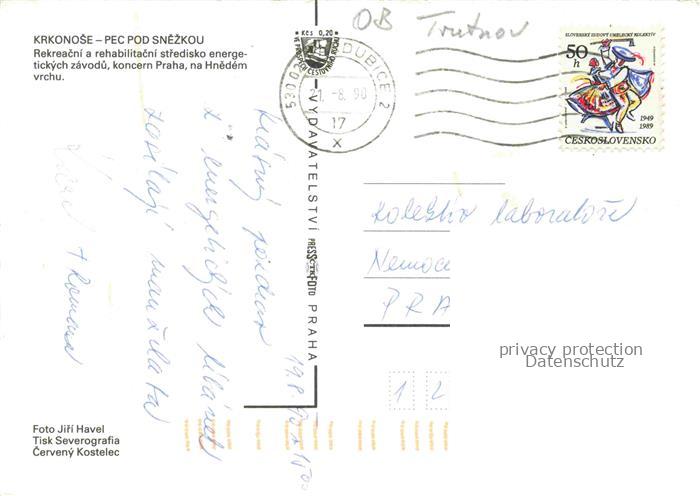 KRKONOŠE – PEC POD SNĚŽKOU
Rekreační a rehabilitační středisko energe-
tických závodů, koncern Praha, na Hnědém
vrchu.
Krásný pozdrav
z energetických
zasílají manželata
+ Romana
19.8.
Foto Jiří Havel
Tisk Severografia
Červený Kostelec
VYDAVATELSTVÍ PRESSFOTO PRAHA
ČTK
Kčs 0,20
VE PROSPĚCH CESTOVNÍHO RUCHU
530 02 PARDUBICE 2
21.-8.90
17
x
OB Trutnov
SLOVENSKÝ ĽUDOVÝ UMELECKÝ KOLEKTÍV
50
h
1949
1989
ČESKOSLOVENSKO
Kolektiv laboratoře
Nemoc
PRA
1 2
privacy protection
Datenschutz